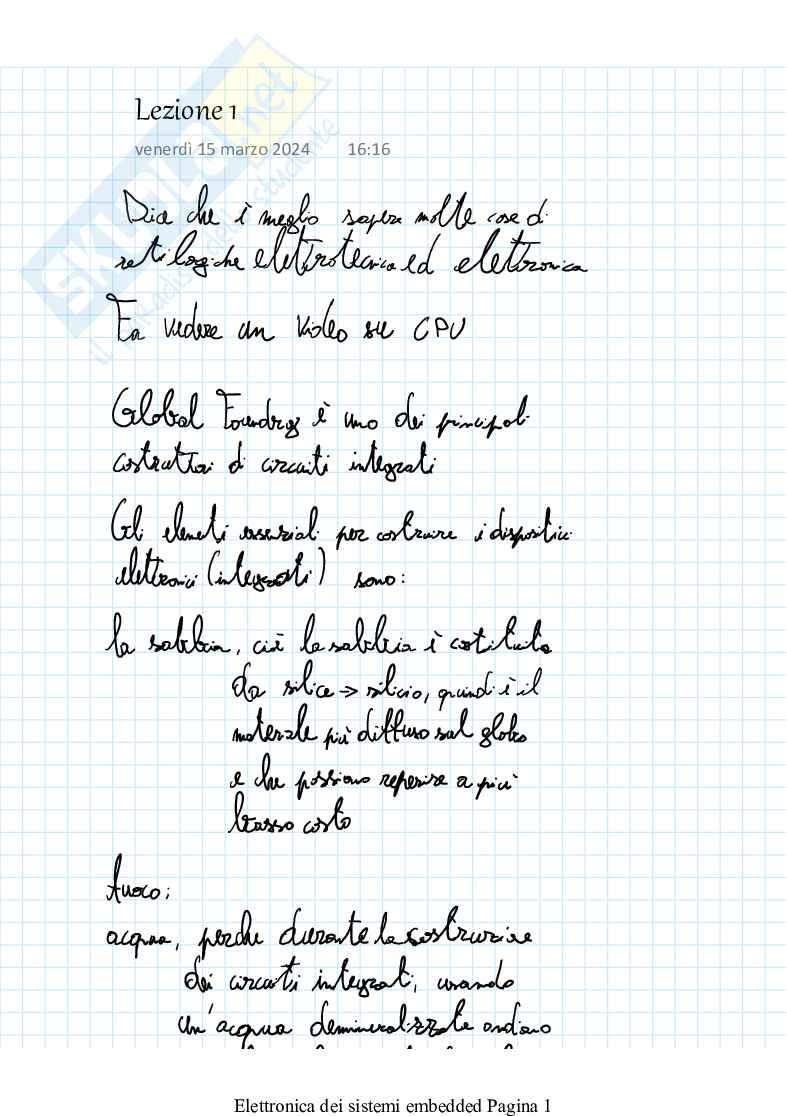 Lezione 1
venerdì 15 marzo 2024 16:16
Dice che è meglio sapere molte cose di
reti logiche elettrotecnica ed elettronica
Fa vedere un video su CPU
Global Foundry è uno dei principali
costruttori di circuiti integrati
Gli elementi essenziali per costruire i dispositivi
elettronici (integrati) sono:
la sabbia, cioè la sabbia è costituita
da silice → silicio, quindi è il
materiale più diffuso sul globo
e che possiamo reperire a più
basso costo
fuoco;
acqua, perche durante la costruzione
dei circuiti integrati, usando
un'acqua demineralizzata andiamo
SKUOLA.net
il paradiso dello studente
Elettronica dei sistemi embedded Pagina 1